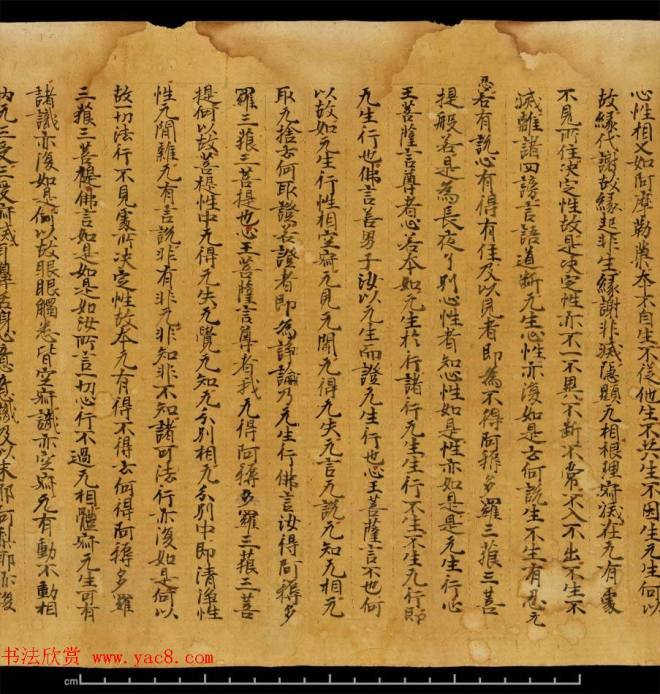 心性相又如阿摩勒菓本不自生不從他生不共生不因生无生何以
故緣代謝故緣起非生緣謝非滅隱顯无相根理寂滅在无有處
不見所住決定性故是決定性亦不一不異不斷不常不入不出不生不
滅離諸四謗言語道斷无生心性亦復如是云何說生不生有忍无
忍若有說心有得有住及以見者即為不得阿耨多羅三藐三菩
提般若是為長夜了別心性者知心性如是性亦如是是无生行心
王菩薩言尊者心若本如无生於行諸行无生生行不生不生无行即
无生行也佛言善男子汝以无生而證无生行也心王菩薩言不也何
以故如无生行性相空寂无見无聞无得无失无言无說无知无相无
取无捨云何取證若證者即為諍論乃无生行佛言汝得阿耨多
羅三藐三菩提也心王菩薩言尊者我无得阿耨多羅三藐三菩
提何以故菩提性中无得无失无覺无知无分別相无分別中即清淨性
性无間雜无有言說非有非无非知非不知諸可法行亦復如是何以
故一切法行不見處所決定性故本无有得不得云何得阿耨多羅
三藐三菩提佛言如是如是如汝所言一切心行不過无相體寂无生可有
諸識亦復如是何以故眼眼觸悉皆空寂識亦空寂无有動不動相
内无三受三受寂滅耳鼻舌身心意意識及以末那阿梨耶亦復
书法欣赏 www.yac8.com
cm